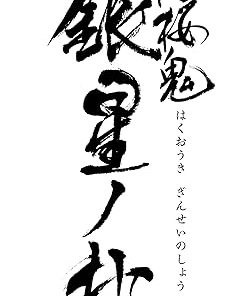 桜鬼
はくおうき ぎんせいのしょう
銀星ノ抄